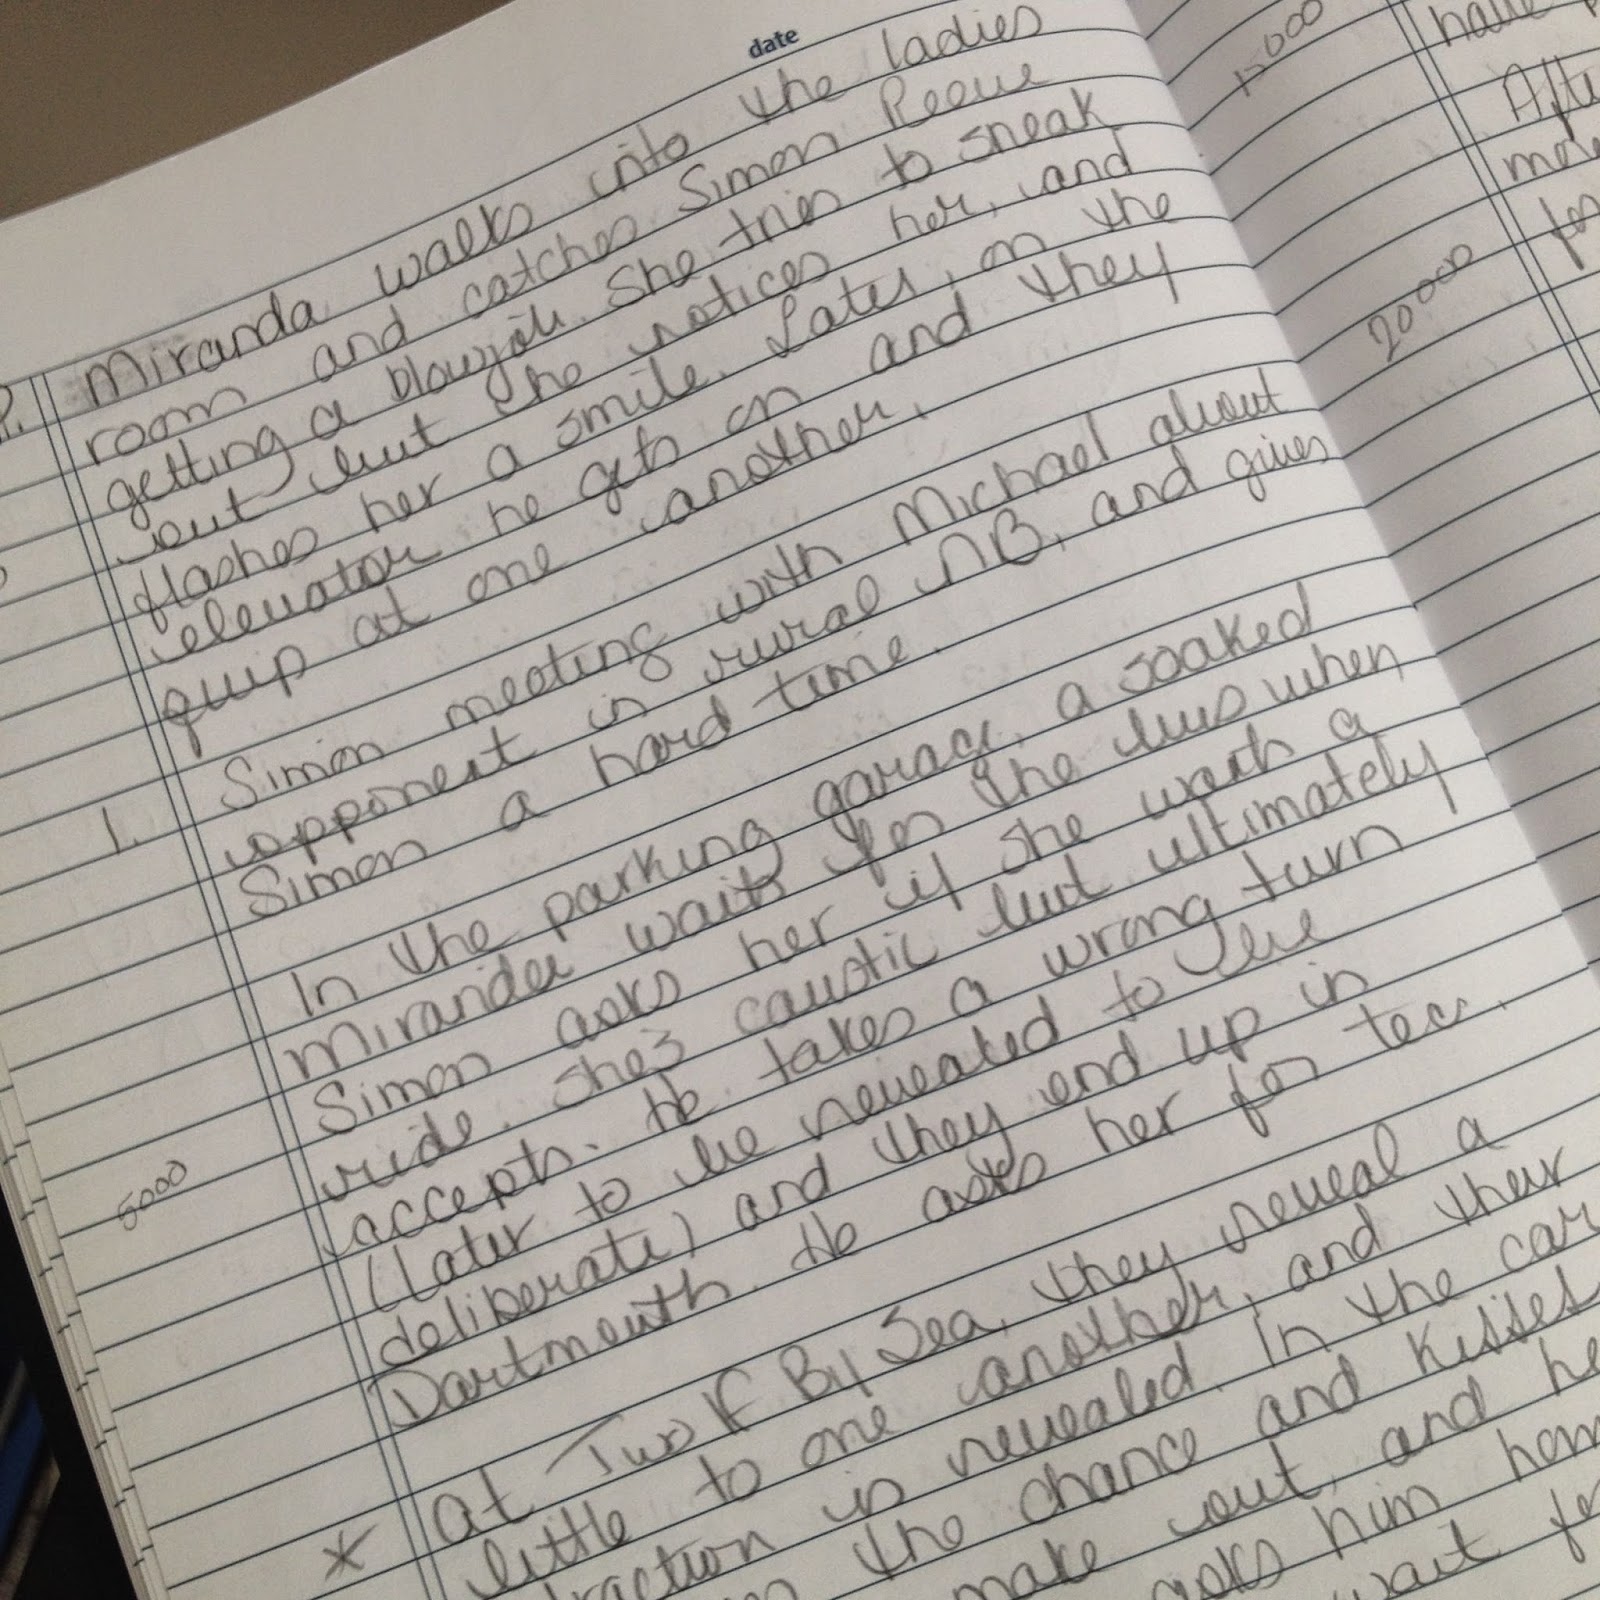 date
P. Miranda walks into the ladies
room and catches Simon Reeve
getting a blowjob. She tries to sneak
out but he notices her, and
flashes her a smile. Later, on the
elevator he gets on and they
quip at one another.
1. Simon meeting with Michael about
opponent in rural NB, and gives
Simon a hard time.
In the parking garage, a soaked
Miranda waits for the bus when
Simon asks her if she wants a
ride. She's caustic but ultimately
accepts. He takes a wrong turn
5000 (later to be revealed to be
deliberate) and they end up in
Dartmouth. He asks her for tea.
* At Two If By Sea, they reveal a
little to one another, and their
is revealed. In the car
the chance and kisses
make out, and he
asks him
wait for
12000
20000
have